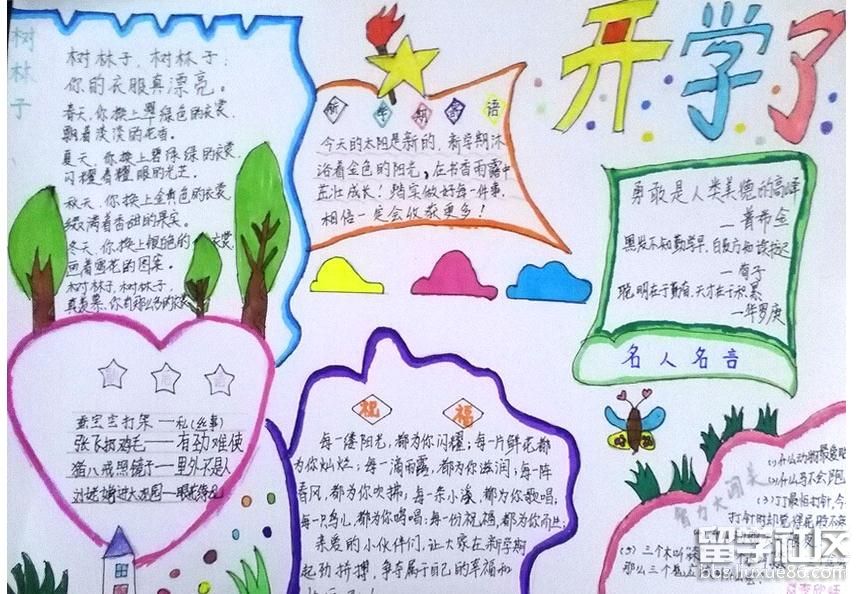 开学了
树林子
树林子，树林子，
你的衣服真漂亮。
春天，你换上翠绿色的衣裳，
飘着淡淡的花香。
夏天，你换上碧绿绿的衣裳，
闪耀着耀眼的光芒。
秋天，你换上金黄色的衣裳，
缀满着香甜的果实。
冬天，你换上银色的衣裳，
画着雪花的图案。
树林子，树林子，
新年期寄语
今天的太阳是新的，新学期沐
浴着金色的阳光，在书香雨露中
茁壮成长！踏实做好每一件事，
相信一定会收获更多！
勇敢是人类美德的高峰
—普希金
黑发不知勤学早，白首方知读书迟
—荀子
聪明在于勤奋，天才在于积累
—华罗庚
名人名言
蚕宝宝打架—私(丝事)
张飞拐鸡毛——有劲难使
猪八戒照镜子——里外不是人
祝福
每一缕阳光，都为你闪耀；每一片鲜花都
为你灿烂；每一滴雨露，都为你滋润；每一阵
春风，都为你吹拂；每一条小溪，都为你歌唱，
每一只鸟儿，都为你鸣唱；每一份祝福，都为你而生；
亲爱的小伙伴们，让大家在新学期
起劲拼搏，争夺属于自己的幸福和
智力大闯关
(1)什么动物最爱贴
(2)什么马不会跑
(3)丁丁最怕打针，今
(9)三个木叫
那么三个
留学社区
bbs.liuxue86.com